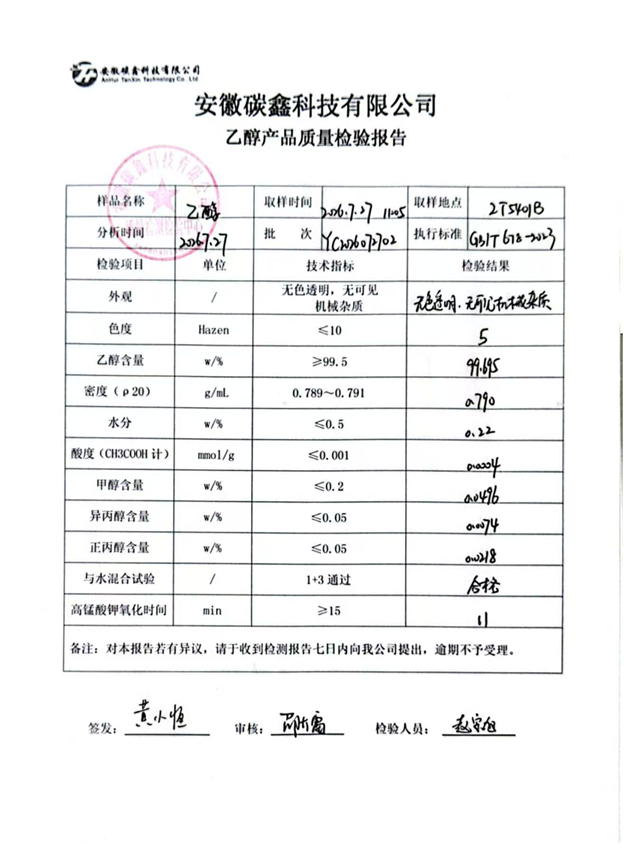 安徽碳鑫科技有限公司
AnHui TanXin Technology Co. Ltd
安徽碳鑫科技有限公司
乙醇产品质量检验报告
样品名称 乙醇 取样时间 2026.7.27 11:05 取样地点 2T5401B
分析时间 2026.7.27 批 次 YC2026072702 执行标准 GB/T 678-2023
检验项目 单位 技术指标 检验结果
外观 / 无色透明，无可见机械杂质 无色透明.无可见机械杂质
色度 Hazen ≤10 5
乙醇含量 w/% ≥99.5 99.695
密度（ρ20） g/mL 0.789～0.791 0.790
水分 w/% ≤0.5 0.22
酸度（CH3COOH 计） mmol/g ≤0.001 0.0004
甲醇含量 w/% ≤0.2 0.0496
异丙醇含量 w/% ≤0.05 0.0074
正丙醇含量 w/% ≤0.05 0.0218
与水混合试验 / 1+3 通过 合格
高锰酸钾氧化时间 min ≥15 11
备注：对本报告若有异议，请于收到检测报告七日内向我公司提出，逾期不予受理。
签发：黄小恒 审核： 检验人员：